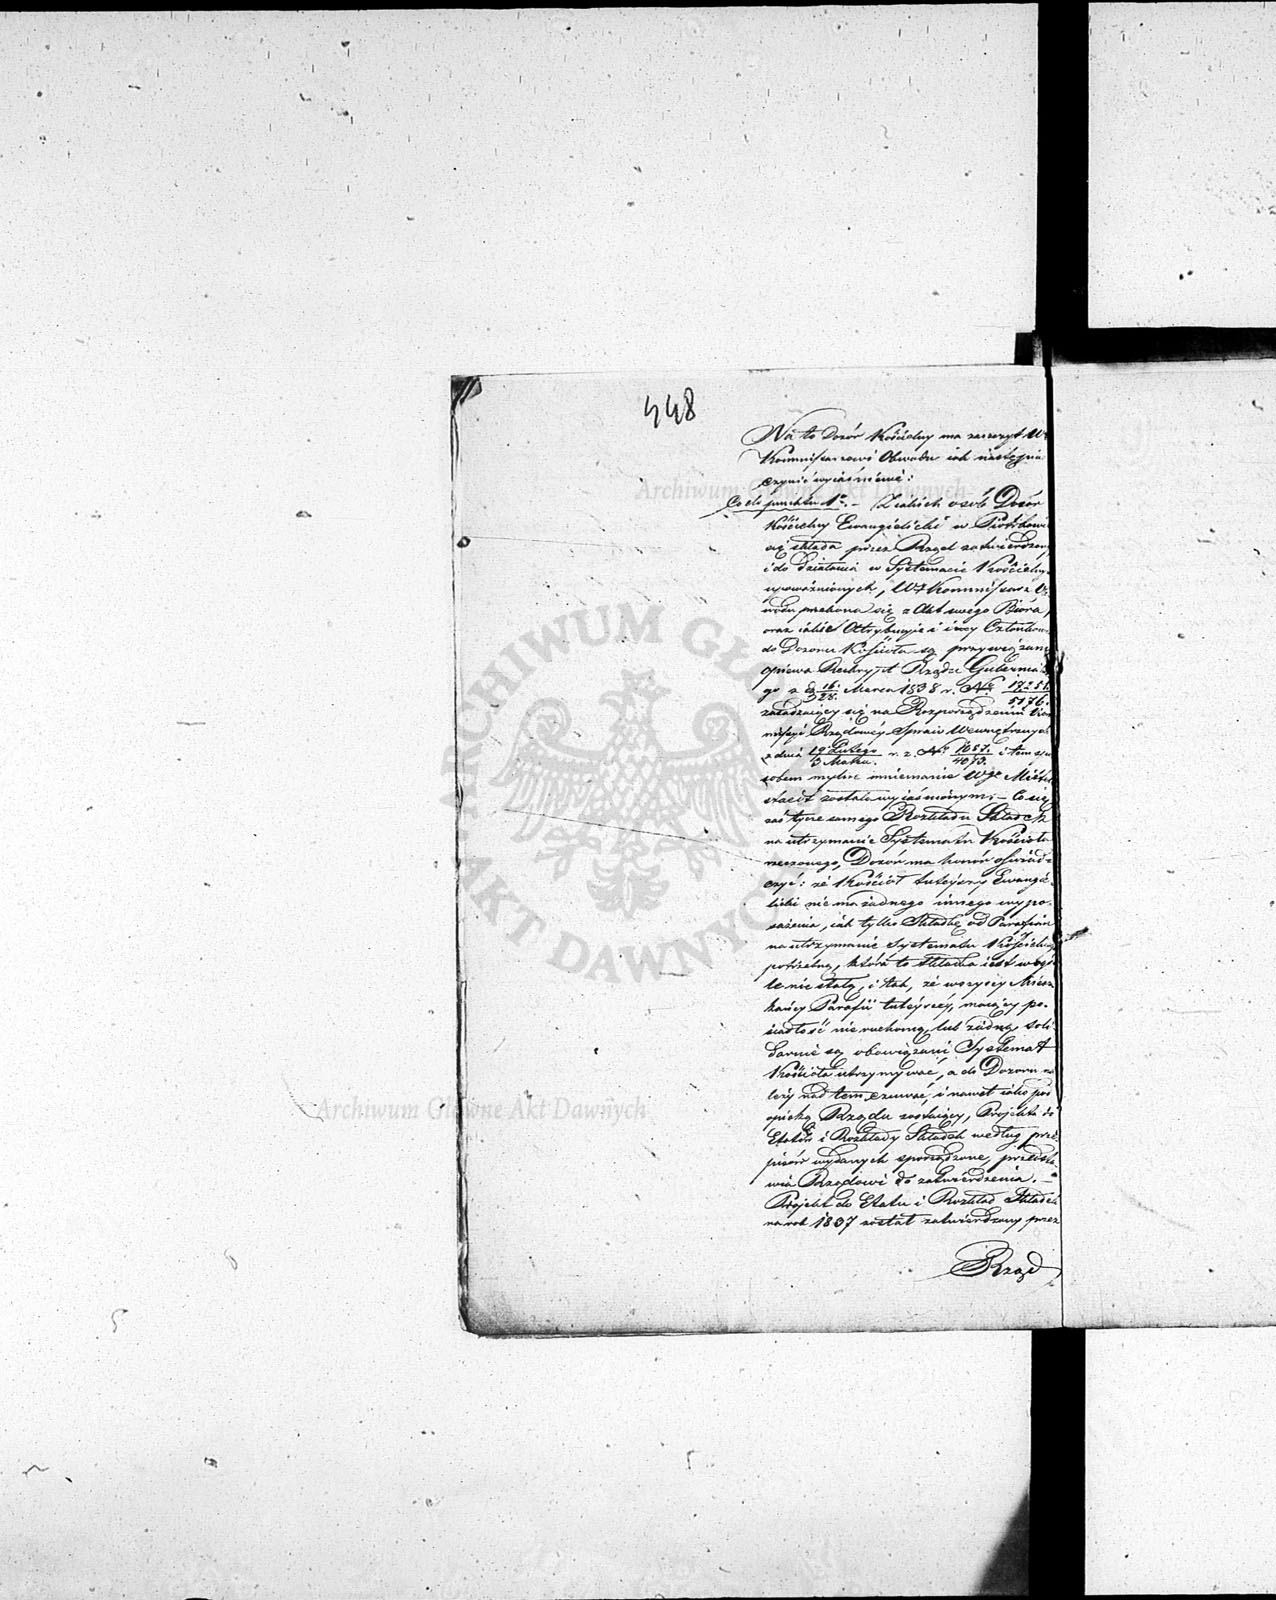 448
Na to Dozór Kościelny ma zaszczyt W
Kommissarzowi Obwodu jak następnie
czynić wyjaśnienie:
Co do punktu 1o. – Z jakich osób Dozór
Kościelny Ewangielicki w Piotrkowie
się składa przez Rząd zatwierdzony
i do działania w Systemacie Kościelny
upoważnionych, WJKommissarz Ob
wodu przekona się z Akt swego Biura,
oraz jakie Attrybucyje i iacy Członkowie
do Dozoru Kościoła są przywiązani
opiewa Reskrypt Rządu Gubernial
go z d 16/28 Marca 1838 r. No 17251/5176.
zasadzający się na Rozporządzeniu Kom
missyi Rządowéj Spraw Wewnętrznych
z dnia 19 Lutego/3 Marca. r. z. No 1657./4073. i tem spo
sobem mylne mniemanie Wgo
zostało wyjaśnionym; – Co się
zaś tycze samego Rozkładu Składek
na utrzymanie Systematu Kościoła
rzeczonego, Dozór ma honor oświad
czyć: że Kościół tutejszy Ewangie
licki nie ma żadnego innego wypo
sażenia, jak tylko Składkę od Parafian
na utrzymanie Systematu Kościelnego
potrzebną, która to składka jest wogó
le nie stałą, i tak, że wszyscy Miesz
kańcy Parafii tutejszéj, maiący po
siadłość nieruchomą lub żadną, soli
darnie są obowiązani Systemat
Kościoła utrzymywać, a do Dozoru na
leży nad tem czuwać, i nawet jako pod
opieką Rządu zostaiący, Projekta do
Etatów i Rozkłady Składek według prze
pisów wydanych sporządzone, przedsta
wia Rządowi do zatwierdzenia. –
Projekt do Etatu i Rozkład Składek
na rok 1837 został zatwierdzony przez
Rząd
ARCHIWUM GŁÓWNE AKT DAWNYCH
Archiwum Główne Akt Dawnych
Archiwum Główne Akt Dawnych